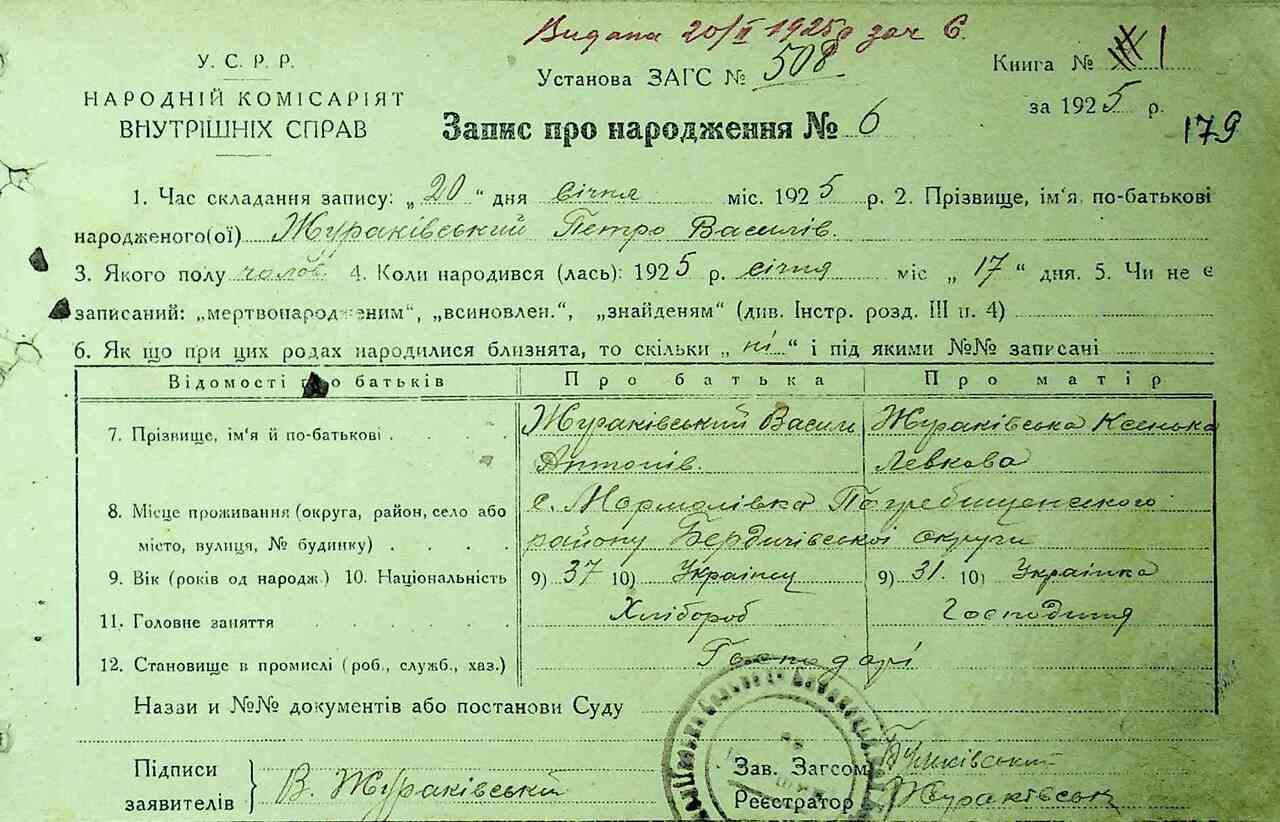 Видана 20/II 1925р зач 6.
У. С. Р. Р.
НАРОДНІЙ КОМІСАРІЯТ
ВНУТРІШНІХ СПРАВ
Установа ЗАГС № 508
Книга № 1
за 1925 р.
179
Запис про народження № 6
1. Час складання запису: „20“ дня січня міс. 1925 р. 2. Прізвище, ім'я, по-батькові
народженого(ої) Жураківський Петро Василів.
3. Якого полу чолов. 4. Коли народився (лась): 1925 р. січня міс „17“ дня. 5. Чи не є
записаний: „мертвонародженим“, „всиновлен.“, „знайденям“ (див. Інстр. розд. III п. 4)
6. Як що при цих родах народилися близнята, то скільки „ні“ і під якими №№ записані
Відомості про батьків Про батька Про матір
7. Прізвище, ім'я й по-батькові Жураківський Василь Жураківська Ксенька
Антонів. Левкова
8. Місце проживання (округа, район, село або с. Мормолівка Погребищенского
місто, вулиця, № будинку) району Бердичівської округи
9. Вік (років од народж.) 10. Національність 9) 37 10) Українец 9) 31. 10) Українка
11. Головне заняття Хлібороб Господиня
12. Становище в промислі (роб., служб., хаз.) Господарі
Назви и №№ документів або постанови Суду
Підписи
заявителів В. Жураківський
Зав. Загсом
Реєстратор Жураківськ